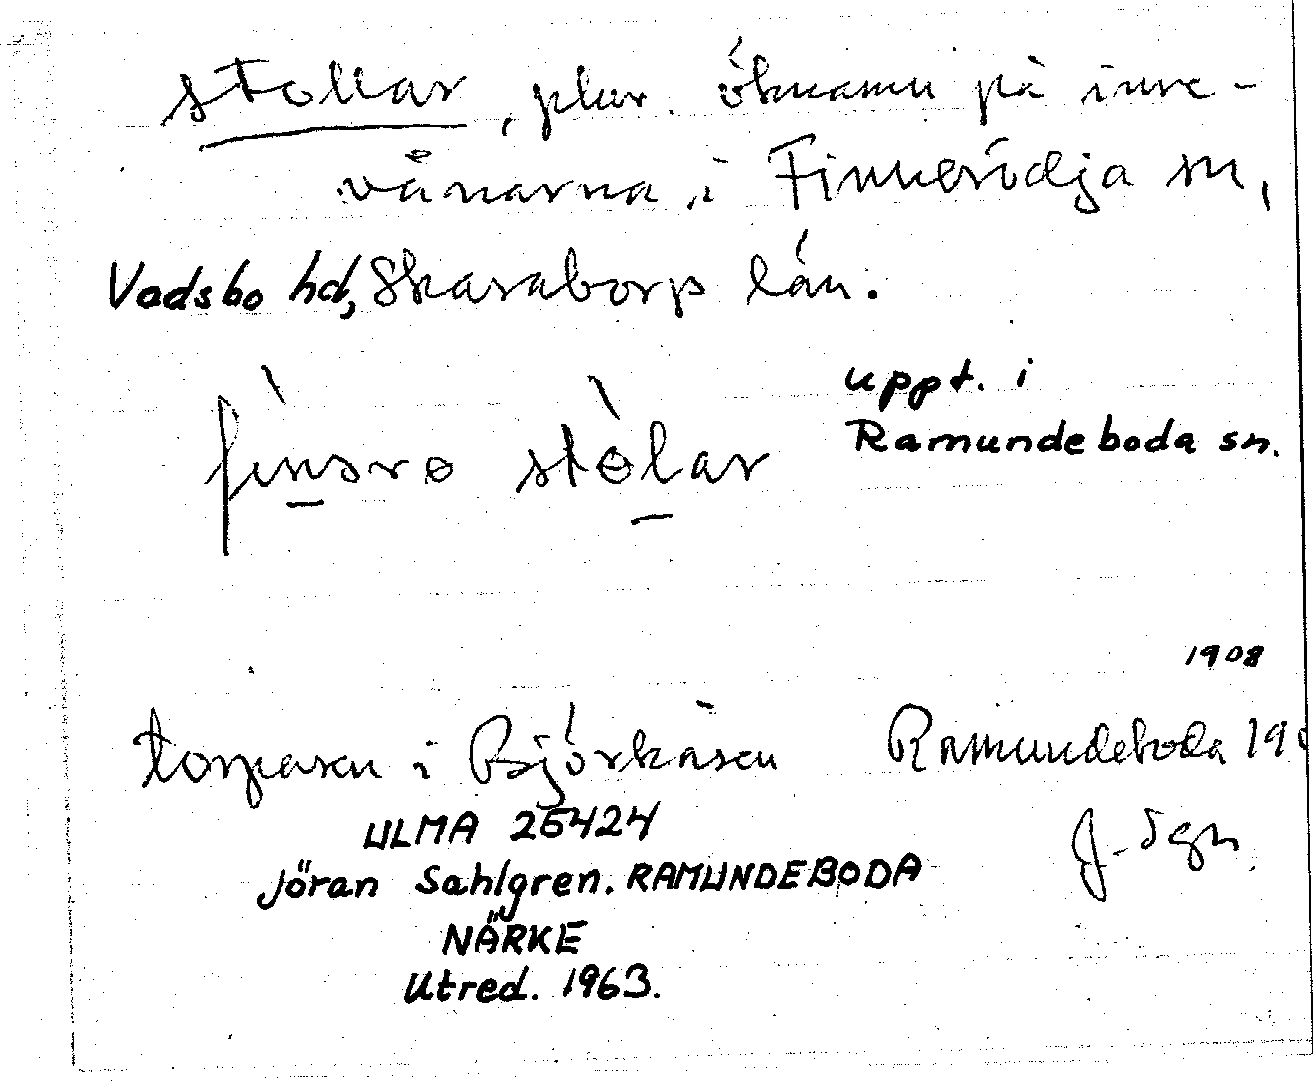 stollar, plur. öknamn på inne-
vånarna i Finnerödja sn,
Vadsbo hd, Skaraborgs län.
uppt. i
Ramundeboda sn.
finərø stølar
1908
torparen i Björkåsen Ramundeboda 190
J. Sgn.
ULMA 26424
Jöran Sahlgren. RAMUNDEBODA
NÄRKE
Utred. 1963.